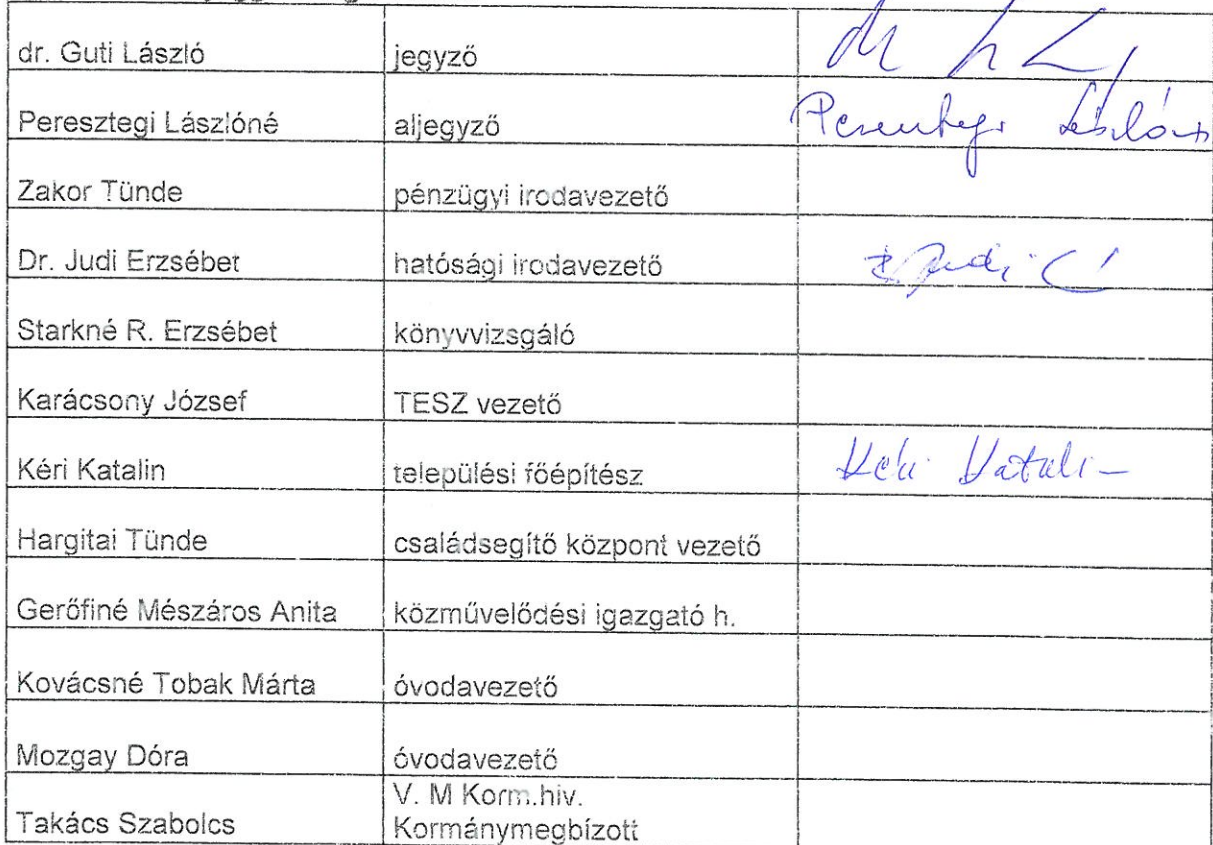 dr. Guti László jegyző
Peresztegi Lászlóné aljegyző Peresztegi Lászlóné
Zakor Tünde pénzügyi irodavezető
Dr. Judi Erzsébet hatósági irodavezető
Starkné R. Erzsébet könyvvizsgáló
Karácsony József TESZ vezető
Kéri Katalin települési főépítész Kéri Katalin
Hargitai Tünde családsegítő központ vezető
Gerőfiné Mészáros Anita közművelődési igazgató h.
Kovácsné Tobak Márta óvodavezető
Mozgay Dóra óvodavezető
V. M Korm.hiv.
Takács Szabolcs Kormánymegbízott